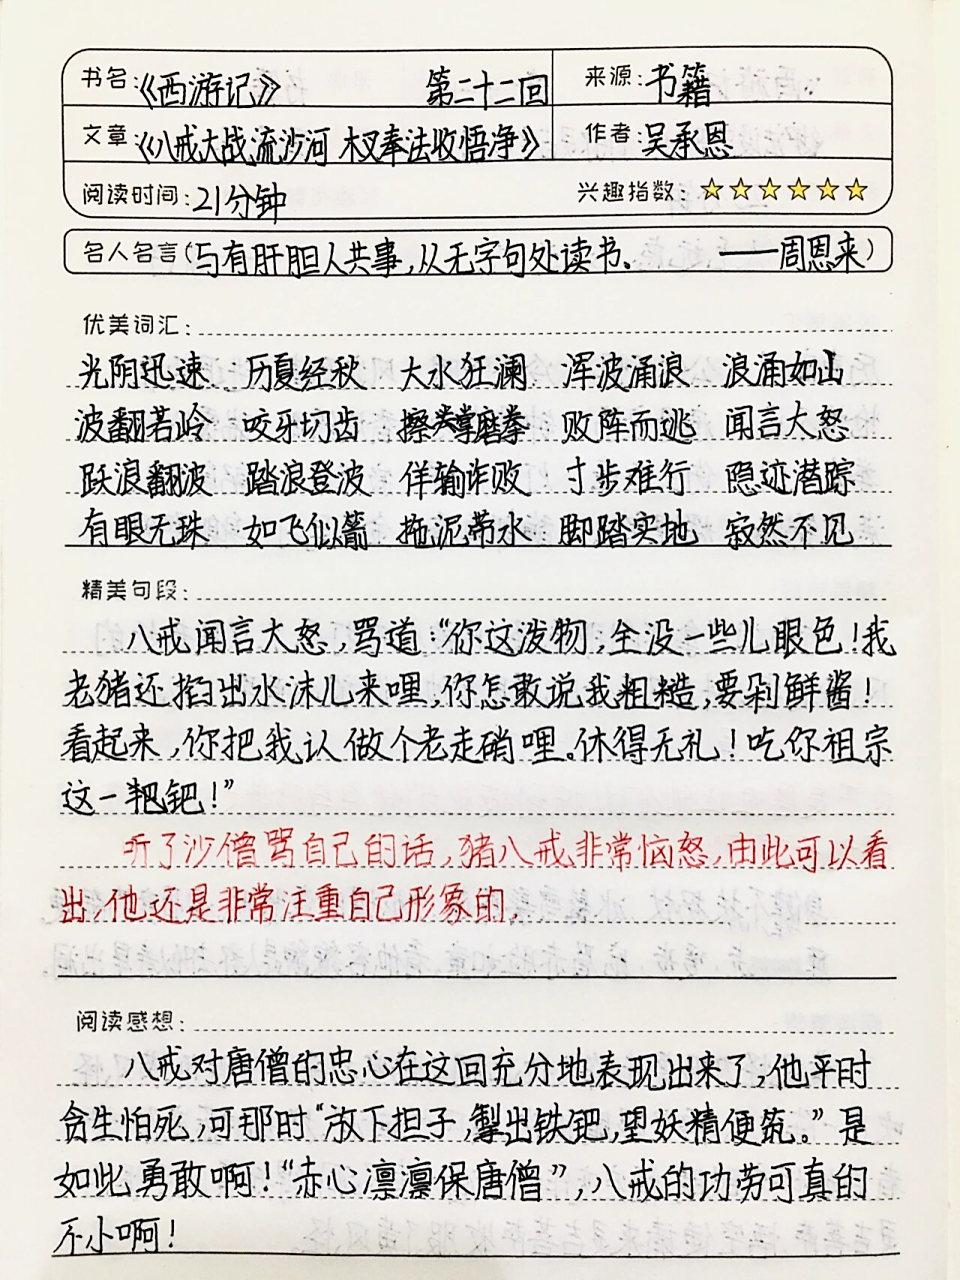 书名:《西游记》 第二十二回 来源:书籍
文章:《八戒大战流沙河 木叉奉法收悟净》 作者:吴承恩
阅读时间:21分钟 兴趣指数:
名人名言(与有肝胆人共事,从无字句处读书。 ——周恩来)
优美词汇:
光阴迅速 历夏经秋 大水狂澜 浑波涌浪 浪涌如山
波翻若岭 咬牙切齿 擦掌磨拳 败阵而逃 闻言大怒
跃浪翻波 踏浪登波 佯输诈败 寸步难行 隐迹潜踪
有眼无珠 如飞似箭 拖泥带水 脚踏实地 寂然不见
精美句段:
八戒闻言大怒,骂道:“你这泼物,全没一些儿眼色!我
老猪还掐出水沫儿来哩,你怎敢说我粗糙,要剁鲜酱!
看起来,你把我认做个老走硝哩。休得无礼!吃你祖宗
这一钯!”
听了沙僧骂自己的话,猪八戒非常恼怒,由此可以看
出,他还是非常注重自己形象的。
阅读感想:
八戒对唐僧的忠心在这回充分地表现出来了,他平时
贪生怕死,可那时“放下担子,掣出铁钯,望妖精便筑。”是
如此勇敢啊!“赤心凛凛保唐僧”,八戒的功劳可真的
不小啊!